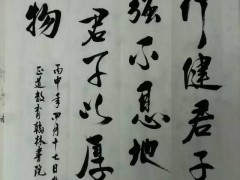 行健君子
强不息地
君子以厚
物
丙申年四月十七日
正道教育翰林书院